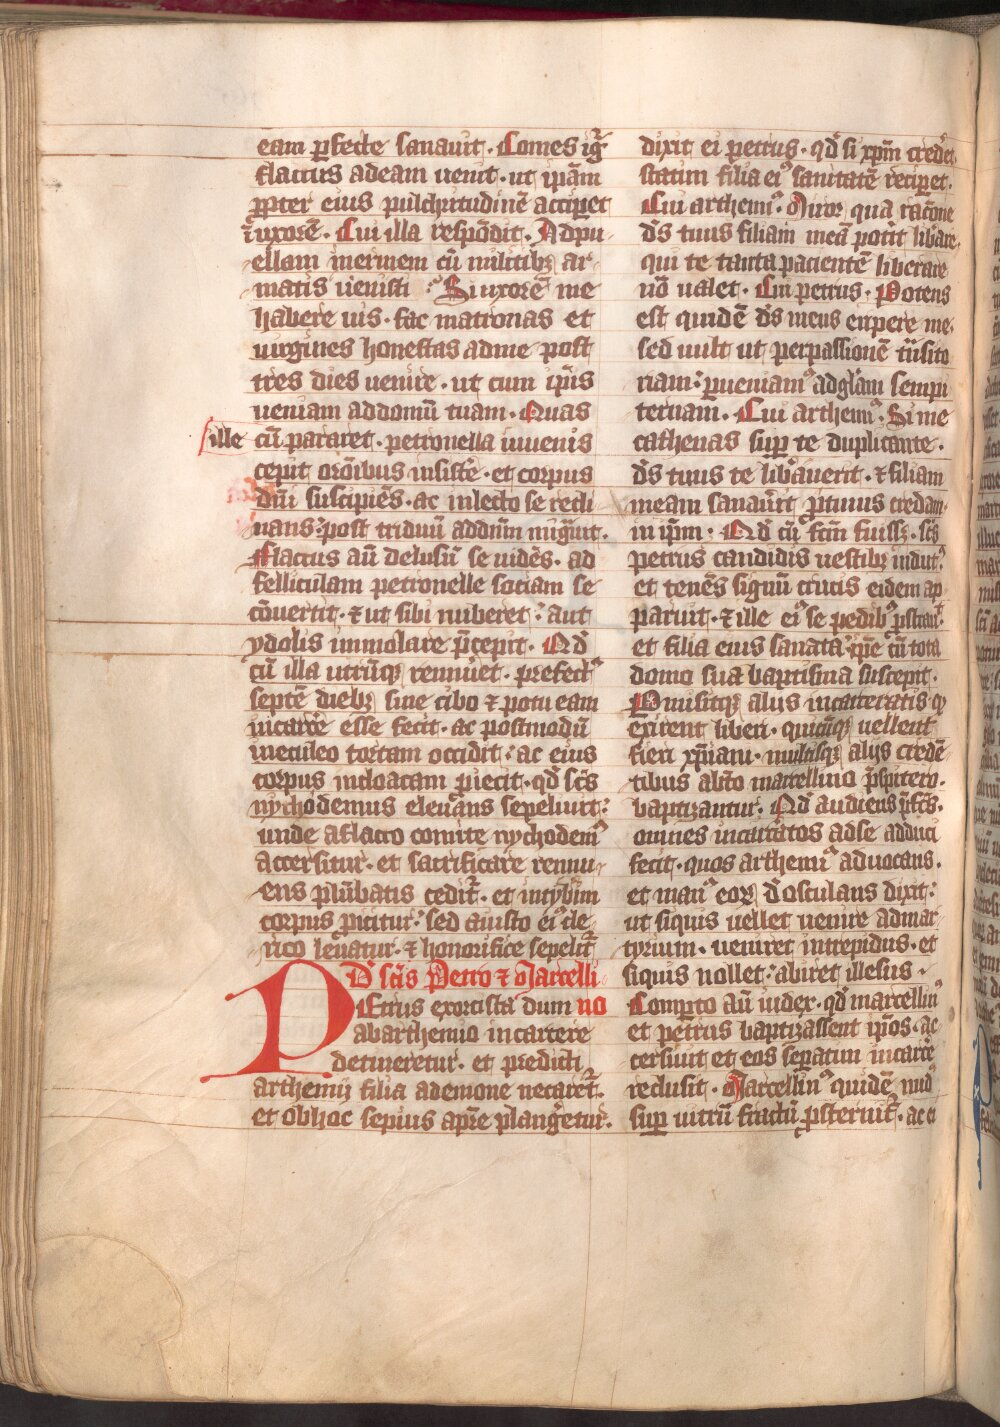 eam ꝑfecte sanauit · Comes igͬ
flaccus ad eam uenit · ut ip̄am
ꝓpter eius pulchritudinē acciꝑet
ī uxorē · Cui illa respōdit · Ad pu
ellam inermem cū militibꝫ ar
matis uenisti · Si uxorē me
habere uis · fac matronas et
uirgines honestas ad me post
tres dies uenire · ut cum ip̄is
ueniam ad domū tuam · Quas
ille cū pararet · petronella iuuenis
cepit or̄onibus insiste̅ · et corpus
dn̄i suscipiēs · ac in lecto se recli
nans · post triduū ad dn̄m migͣuit ·
Flaccus au̅ delusū se uidēs · ad
felliculam petronelle sociam se
cōuertit · ⁊ ut sibi nuberet · aut
ydolis immolare p̄cepit · Qd̄
cū illa utrūqꝫ rennuet · prefectꝰ
septē diebꝫ sine cibo ⁊ potu eam
in carcē esse fecit · ac postmodū
in eculeo tortam occidit · ac eius
corpus in cloacam ꝓiecit · qd̄ sc̄s
nychodemus eleuans sepeliuit ·
unde a flacco comite nychodemꝰ
accersitur · et sacrificare rennu
ens plūbatis cedit᷑ · et in tybͥim
corpus ꝓicitur · sed a iusto eiꝰ cle
rico leuatur · ⁊ honorifice sepelit᷑
D̄ sc̄is Petro ⁊ Marcelli
no
Petrus exorcista dum
ab arthemio in carcere
detineretur · et predicti
arthemij filia a demone necaret᷑ ·
et ob hoc sepius a pr̄e plangēetur ·
dixit ei petrus · qd̄ si xp̄m crederet
statim filia eiꝰ sanitatē reciꝑet ·
Cui arthemiꝰ · Miror qua rac̄one
ds̄ tuus filiam meā potͥit libͤare
qui te tanta pacientē liberare
nō ualet · Cui petrus · Potens
est quidē ds̄ meus eripere me ·
sed uult ut per passionē tn̄sito
riam · ꝑueniamꝰ ad gl̄am sempi
ternam · Cui arthemiꝰ · Si me
cathenas suꝑ te duplicante ·
ds̄ tuus te libͤauerit · ⁊ filiam
meam sanauͥit ꝓtinus credam
in ip̄m · Qd̄ cū fc̄m fuissꝫ · sc̄s
petrus candidis uestibꝫ indutꝰ
et tenēs signū crucis eidem ap
paruit · ⁊ ille eiꝰ se pedibꝰ ꝓstrauit
et filia eius sanata · ip̄e cū tota
domo sua baptisma suscepit ·
Promisitqꝫ alijs incarceratis qͦ
exirent liberi · quicūqꝫ uellent
fieri xp̄iani · multisqꝫ alijs credē
tibus a bt̄o marcellino p̄sbitero ·
baptizantur · Qd̄ audiens p̄fc̄s ·
omnes incarcͤatos ad se adduci
fecit · quos arthemiꝰ aduocans ·
et manꝰ eoꝝ deosculans dixit ·
ut siquis uellet uenire ad mar
tyrium · ueniret intrepidus · et
siquis nollet · abiret illesus ·
Comꝑto au̅ iudex · qd̄ marcellinꝰ
et petrus baptizassent ip̄os · ac
cersiuit et eos separatim in carcē
reclusit · Marcellinꝰ quidē nudꝰ
suꝑ uitrū fractū ꝓsternit᷑ · ac ei